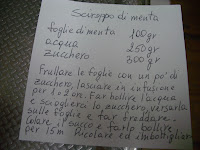 Sciroppo di menta
foglie di menta 100gr
acqua 250gr
zucchero 300gr
Frullare le foglie con un po' di
zucchero, lasciare in infusione
per 1 o 2 ore. Far bollire l'acqua
e sciogliere lo zucchero, versarla
sulle foglie e far freddare.
Colare il succo e farlo bollire
per 15 m Ricolare ed imbottigliare